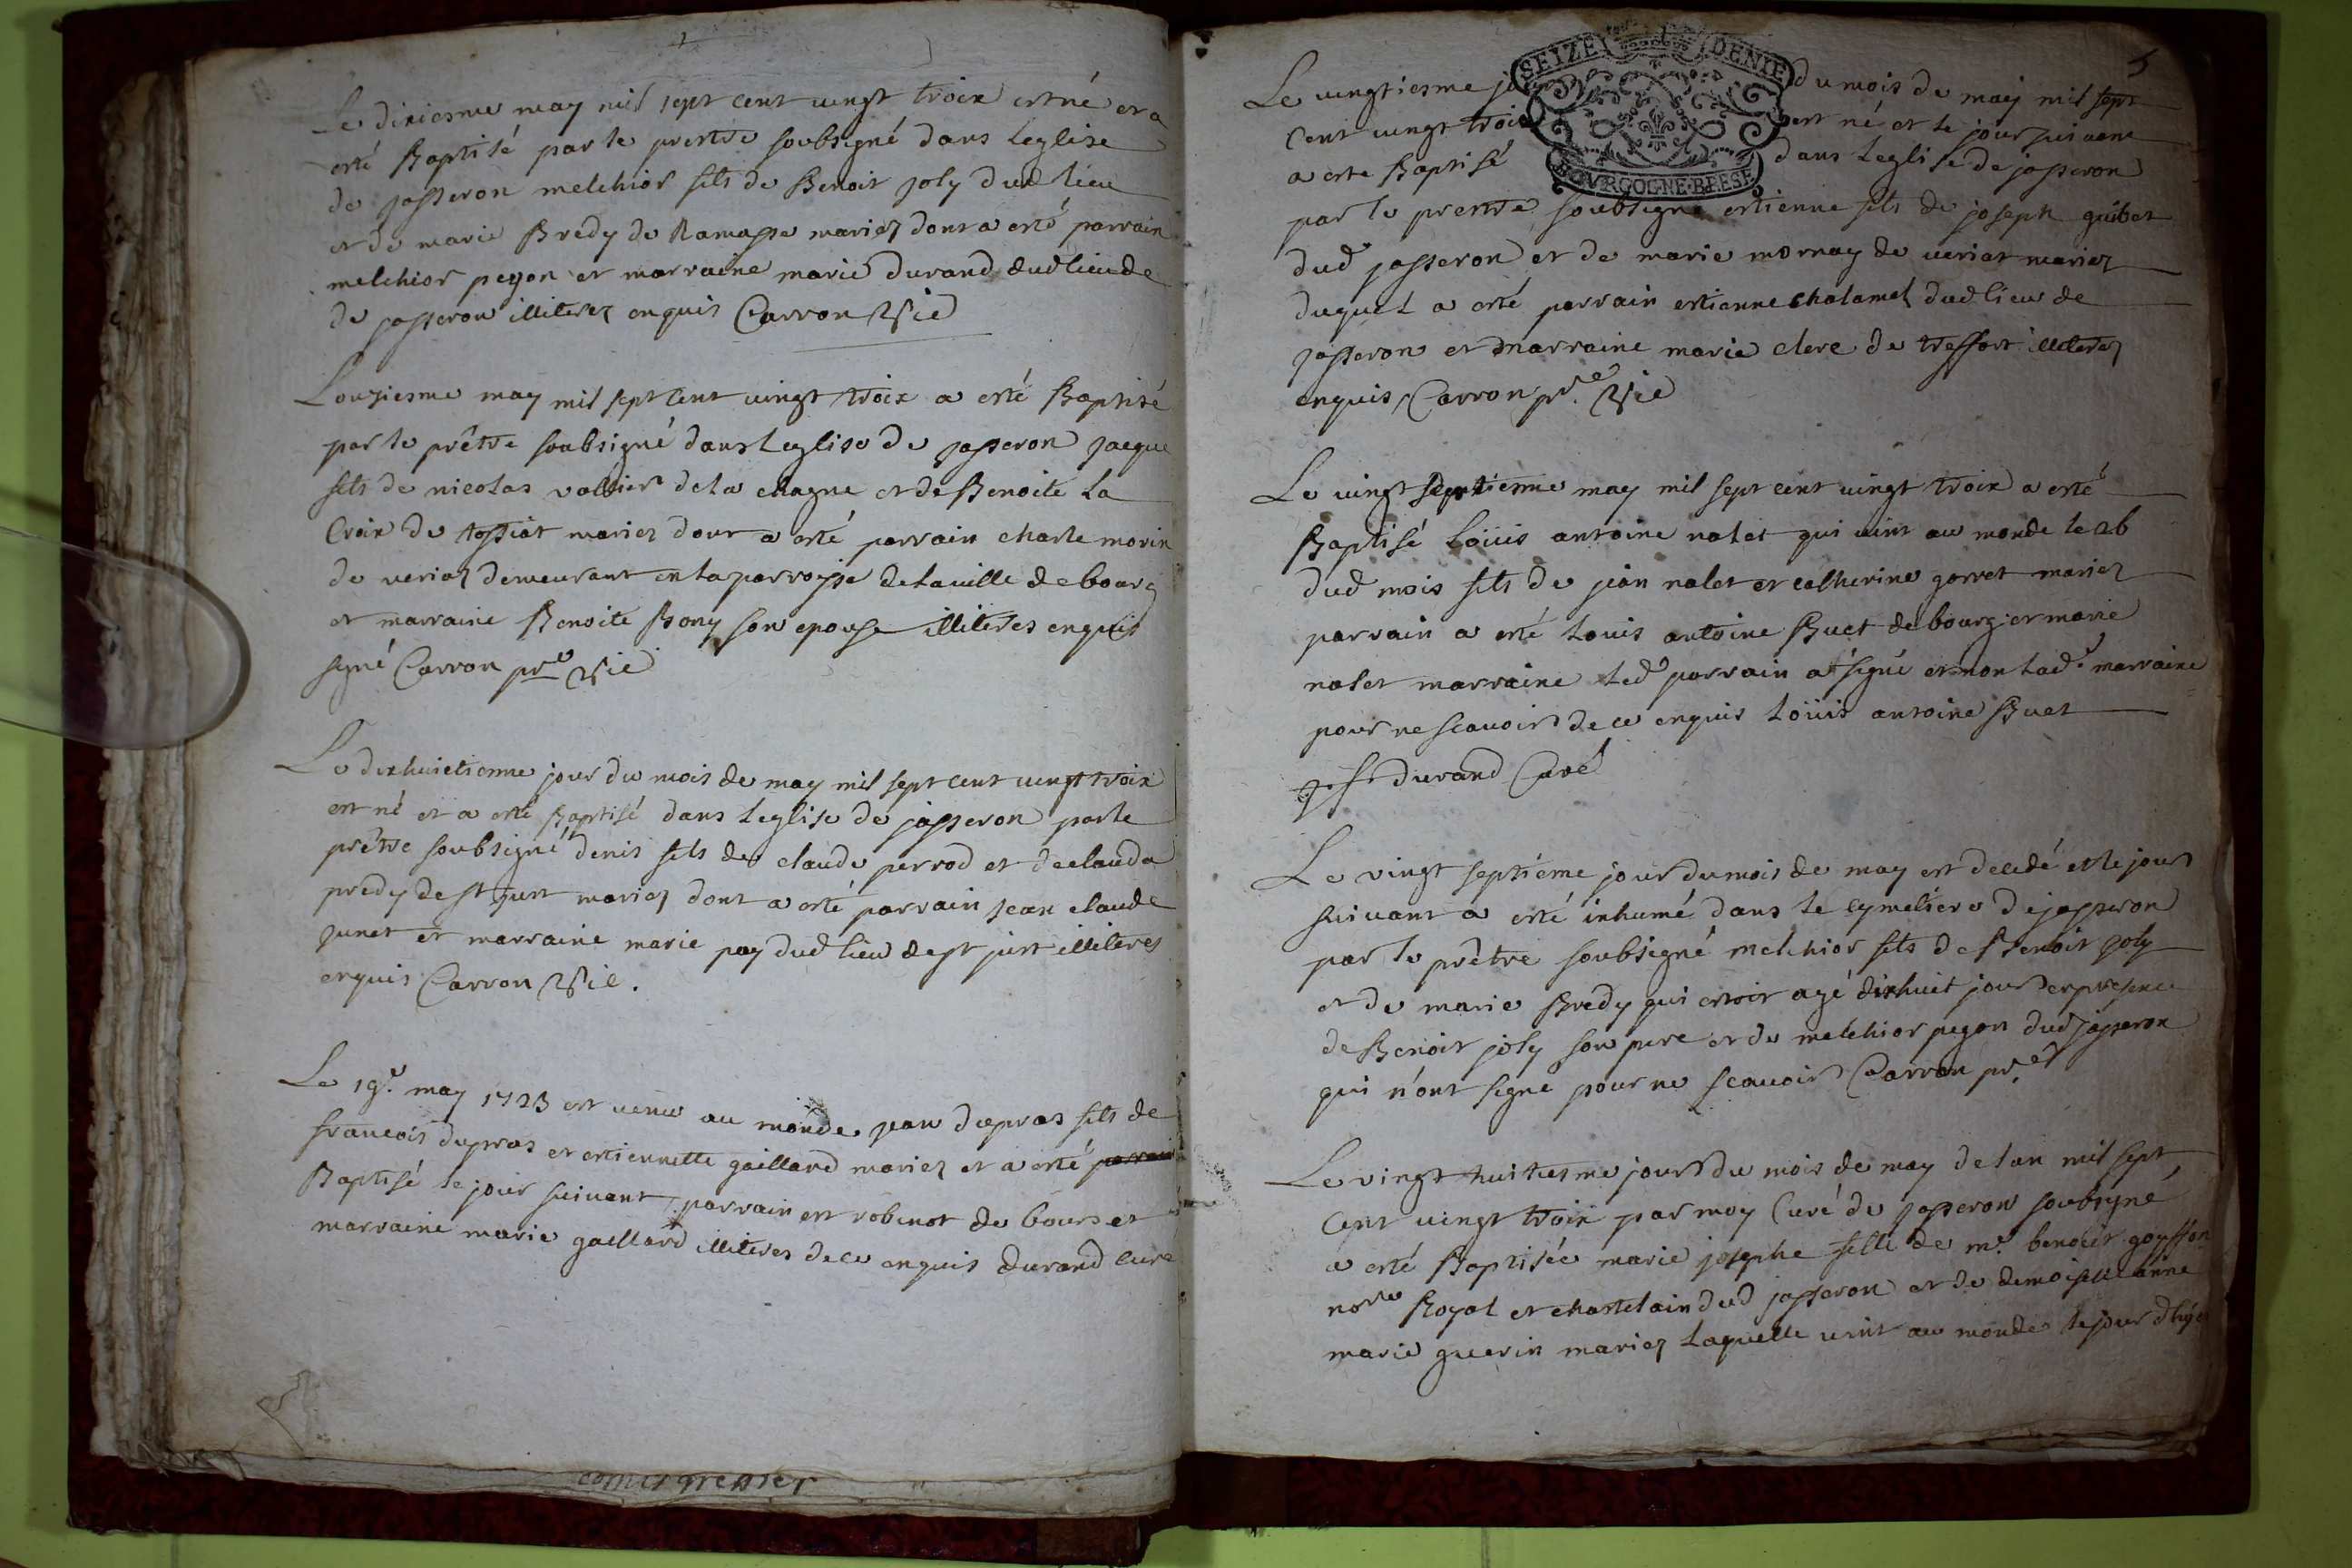 Le dixiesme may mil sept cent vingt troix est né et a
esté Baptisé par le prestre soubsigné dans leglise
de jasseron melchior fils de Benoit joly dud lieu
et de marie Bredy de Ramasse mariez dont a esté parrain
melchior pegon et marraine marie durand dud lieu de
de jasseron illiterez enquis Carron Vic
Lonziesme may mil sept cent vingt troix a esté Baptisé
par le prêtre soubsigné dans leglise de jasseron jacque
fils de nicolas vallier de la chagne et de Benoite la
Croix de tossiat mariez dont a esté parrain charle morin
de veriaz demeurant en la parroisse de la ville de bourg
et marraine Benoite Bony son epouse illiteres enquis
signé Carron pre Vic
Le dixhuictiesme jour du mois de may mil sept cent vingt troix
est né et a esté Baptisé dans leglise de jasseron par le
prêtre soubsigné denis fils de claude perrod et de clauda
predy de st just mariez dont a esté parrain jean claude
junet et marraine marie pay dud lieu de st just illiteres
enquis Carron Vic.
Le 19e may 1723 est venu au monde jean dupras fils de
francois dupras et estiennette gaillard mariez et a esté parrain
Baptisé le jour suivant, parrain est robinot de bours et
marraine marie gaillard illiteres de ce enquis durand cure
comes grenier
5
SEIZE DENIE
BOURGOGNE·BRESSE
Le vingtiesme jo du mois de may mil sept
Cent vingt troix est né et le jour suivant
a este Baptisé dans leglise de jasseron
par le prestre soubsigné estienne fils de joseph guibet
dud jasseron et de marie mornay de veriat mariez
duquel a esté parrain estienne chalamel dud lieu de
jasseron et marraine marie clerc de treffort illiterez
enquis, Carron pre. Vic
Le vingt septiesme may mil sept cent vingt troix a esté
Baptisé Loüis antoine nalet qui vint au monde le 26
dud mois fils de jean nalet et catherine gorret mariez
parrain a esté Louis antoine Buet de bourg et marie
nalet marraine led parrain a signé et non lade marraine
pour ne scavoir de ce enquis Loüis antoine Buet
durand Curé
Le vingt septiéme jour du mois de may est decedé et le jour
suivant a esté inhumé dans le cymetiere de jasseron
par le prêtre soubsigné melchior fils de Benoit joly
et de marie Bredy qui estoit agé dixhuit jour en presence
de Benoit joly son pere et de melchior pegon dud jasseron
qui n'ont signe pour ne scavoir Carron pre
Le vingt huitiesme jour du mois de may de lan mil sept
Cent vingt troix par moy Curé de jasseron soubsigné
a esté Baptisée marie josephe fille de me. benoit goyffon
nore Royal et chastelain dud jasseron et de demoiselle anne
marie guerin mariez laquelle vint au monde le jour dhyer